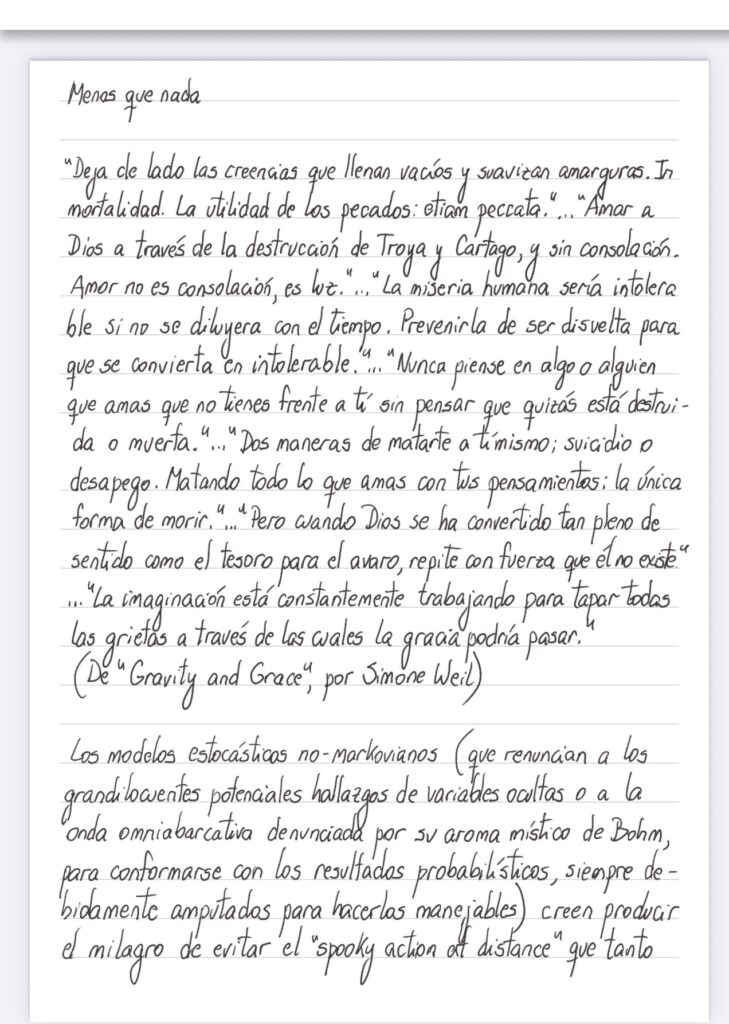 Menos que nada
"Deja de lado las creencias que llenan vacíos y suavizan amarguras. In
mortalidad. La utilidad de los pecados: etiam peccata."..."Amar a
Dios a través de la destrucción de Troya y Cartago, y sin consolación.
Amor no es consolación, es luz."..."La miseria humana sería intolera
ble si no se diluyera con el tiempo. Prevenirla de ser disvelta para
que se convierta en intolerable."..."Nunca piense en algo o alguien
que amas que no tienes frente a tí sin pensar que quizás está destrui-
da o muerta."..."Dos maneras de matarte a tí mismo; suicidio o
desapego. Matando todo lo que amas con tus pensamientos: la única
forma de morir."..."Pero cuando Dios se ha convertido tan pleno de
sentido como el tesoro para el avaro, repite con fuerza que él no existe"
..."La imaginación está constantemente trabajando para tapar todas
las grietas a través de las cuales la gracia podría pasar."
(De "Gravity and Grace", por Simone Weil)
Los modelos estocásticos no-markovianos (que renuncian a los
grandilocuentes potenciales hallazgos de variables ocultas o a la
onda omniabarcativa denunciada por su aroma místico de Bohm,
para conformarse con los resultados probabilísticos, siempre de-
bidamente amputados para hacerlos manejables) creen producir
el milagro de evitar el "spooky action at distance" que tanto